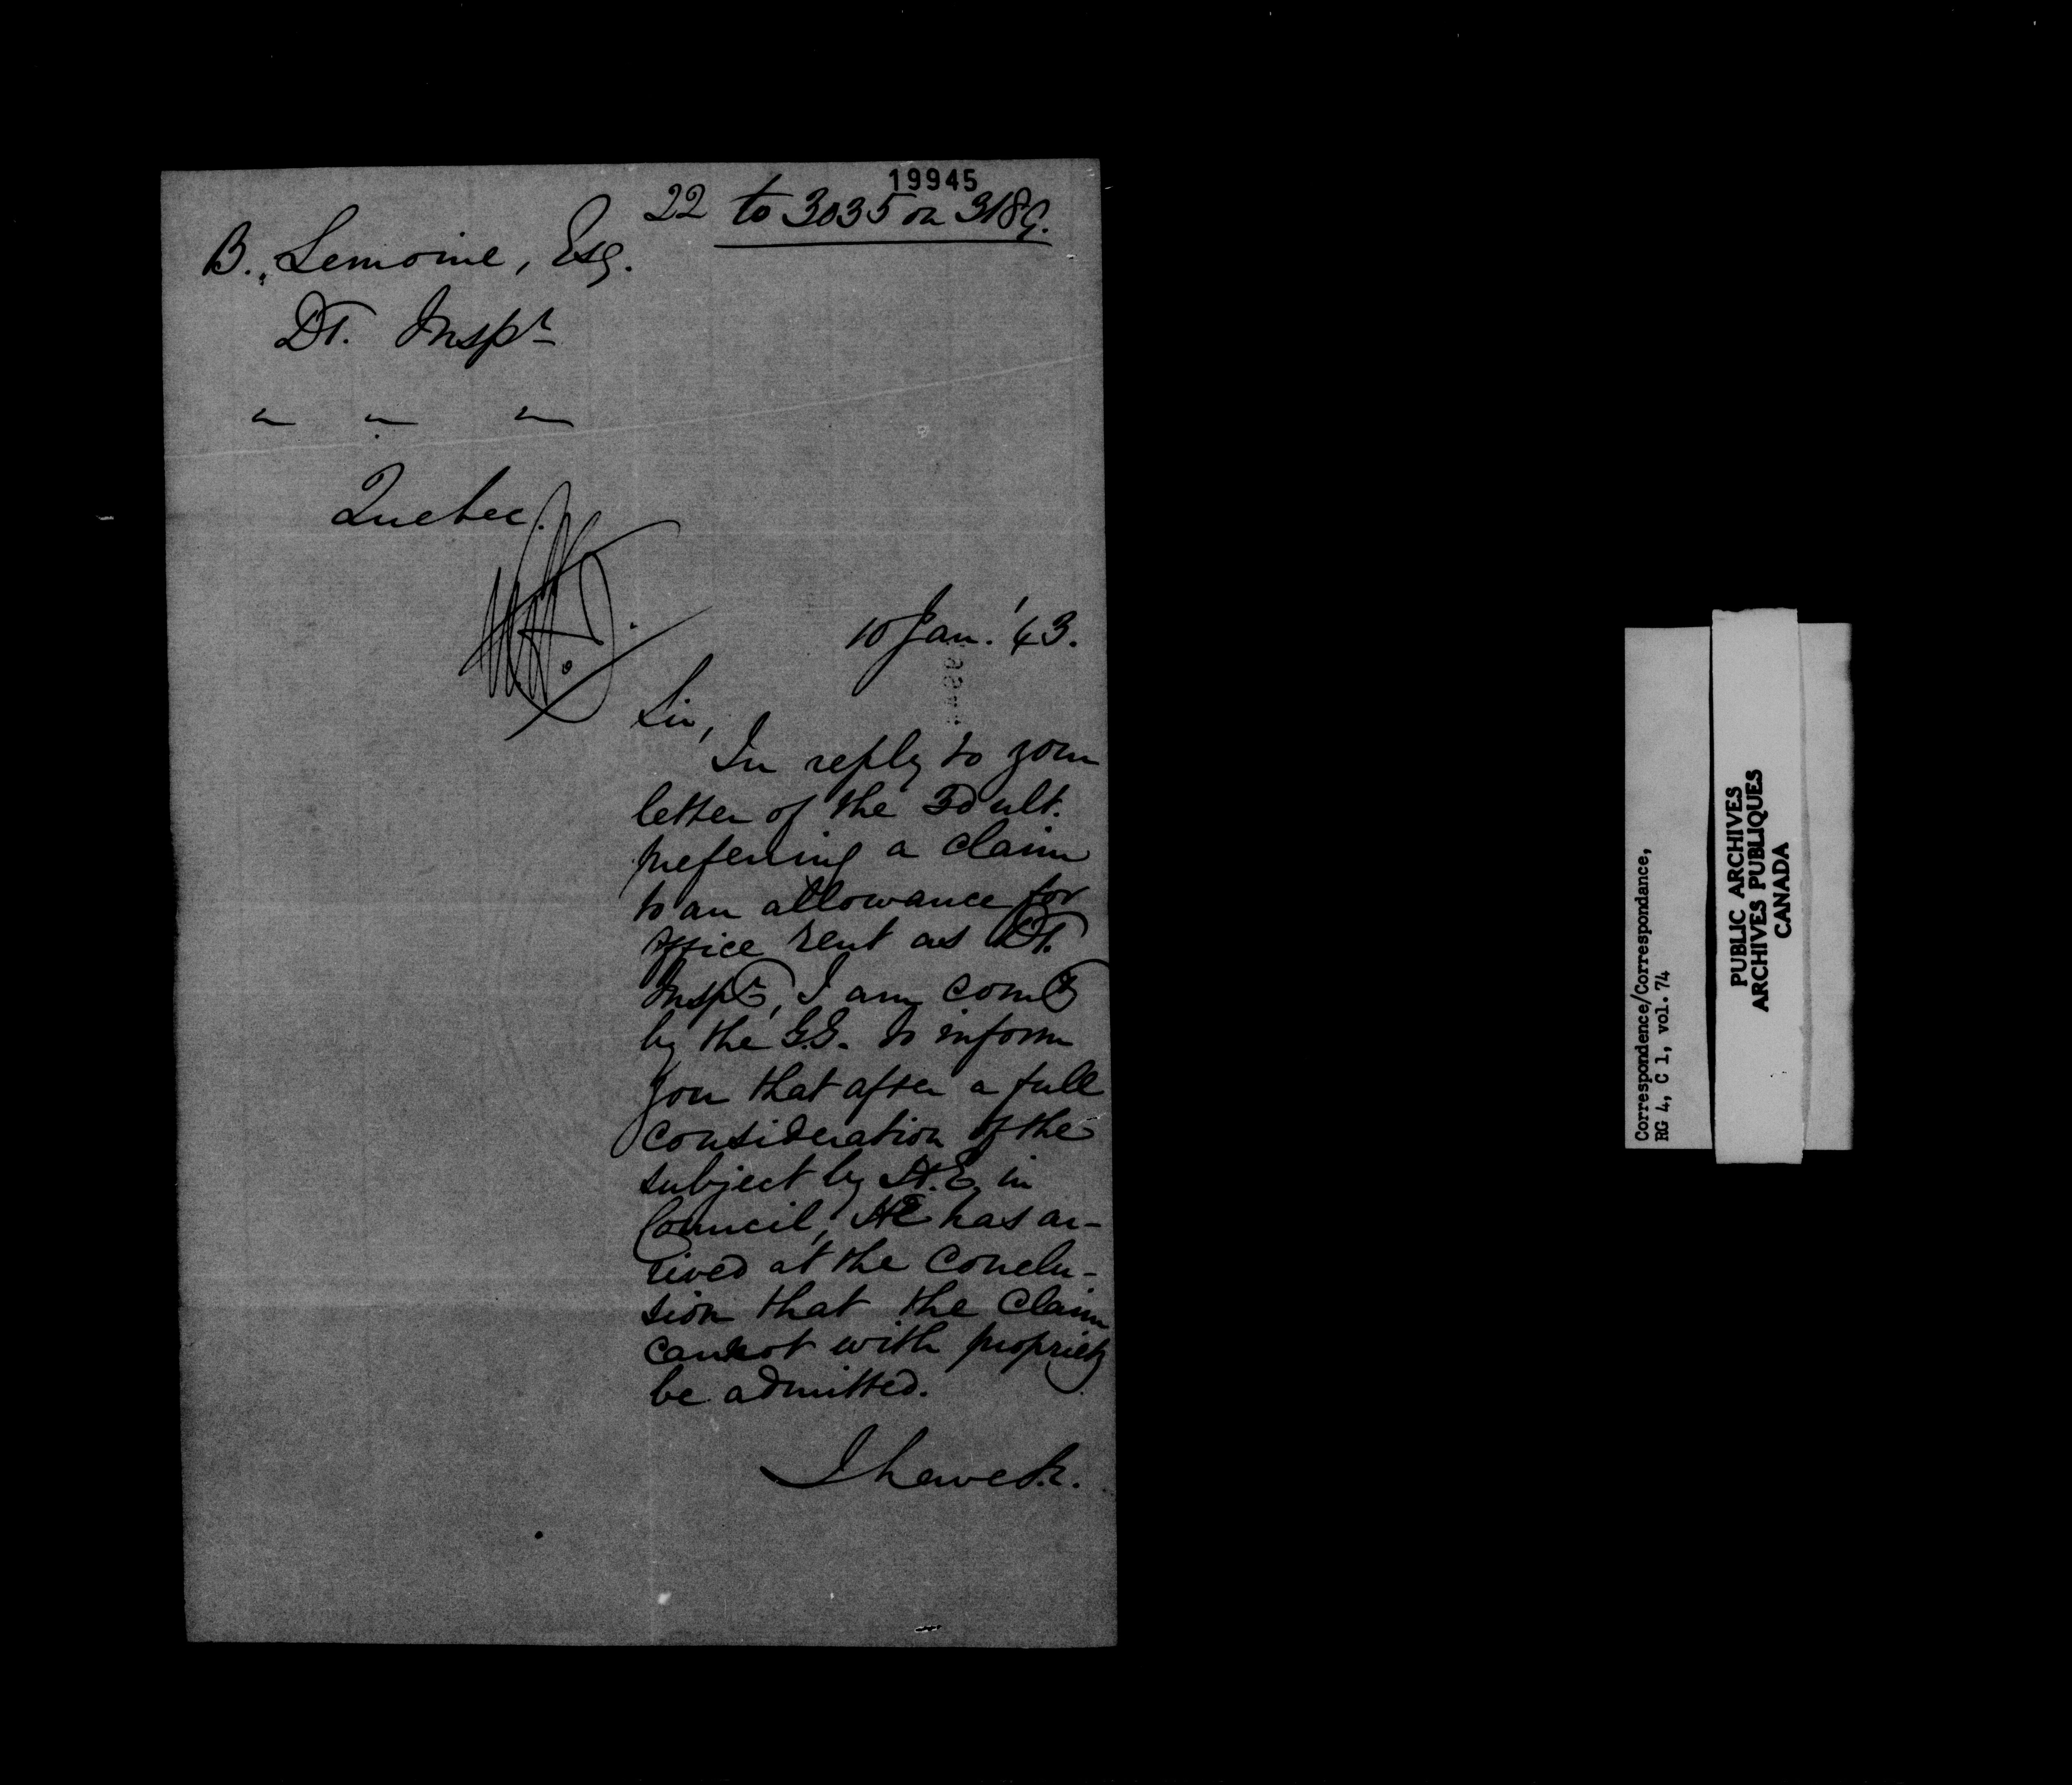 19945
22 to 3035 on 3189.
B. Lemoine, Esq.
Dt. Inspr
" " "
Quebec.
10 Jan. '43.
Sir,
In reply to your
letter of the 3d ult.
preferring a claim
to an allowance for
office rent as Dt.
Inspr, I am comd
by the G.G. to inform
you that after a full
consideration of the
subject by H.E. in
Council, HE has ar-
rived at the conclu-
sion that the claim
cannot with propriety
be admitted.
I have &c.
Correspondence/Correspondance,
RG 4, C 1, vol. 74
PUBLIC ARCHIVES
ARCHIVES PUBLIQUES
CANADA